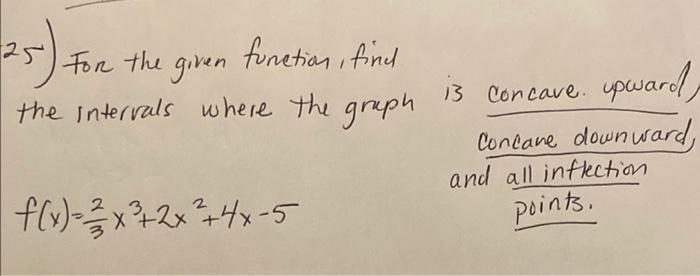 25) For the given function, find
the intervals where the graph is concave upward,
concave downward,
and all inflection
points.
f(x)=2/3x³+2x²+4x-5